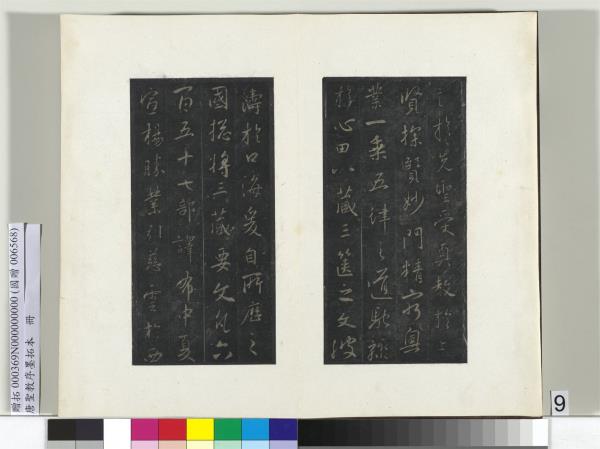 之於先聖受真教於上
賢探賾妙門精窮奧
業一乘五律之道馳驟
於心田八藏三篋之文波
濤於口海爰自所歷之
國總將三藏要文凡六
百五十七部譯布中夏
宣揚勝業引慈雲於西
贈拓 000369N000000000 (國贈 006568)
唐聖教序墨拓本 冊
9